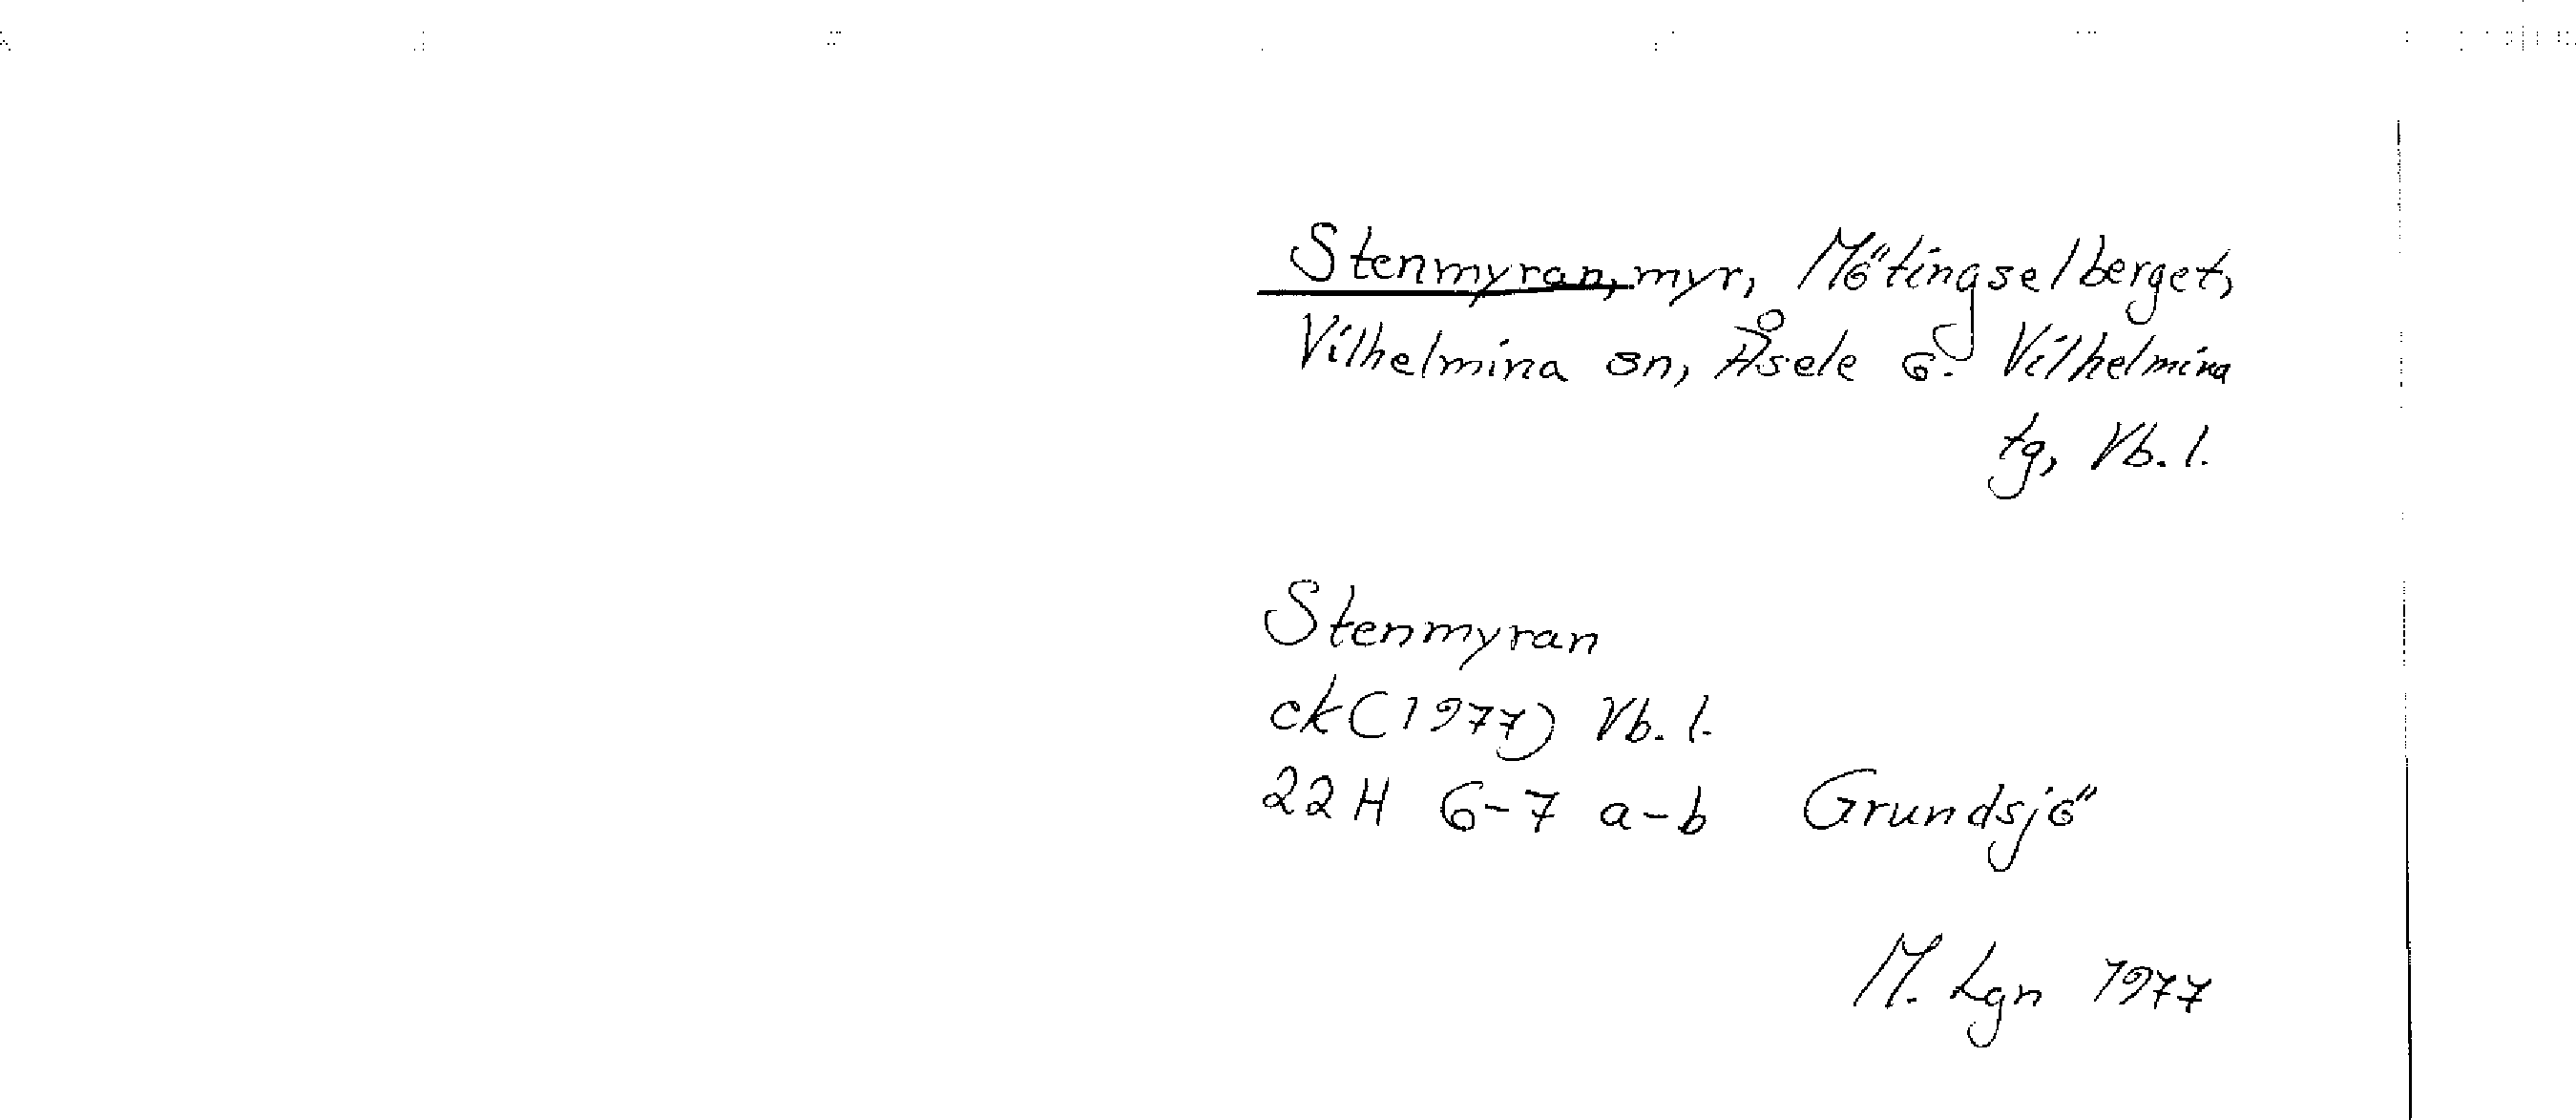 Stenmyran, myr, Mötingselberget,
Vilhelmina sn, Åsele o. Vilhelmina
tg, Vb. l.
Stenmyran
ek (1977) Vb. l.
22 H 6-7 a-b Grundsjö
M. Lgn 1977